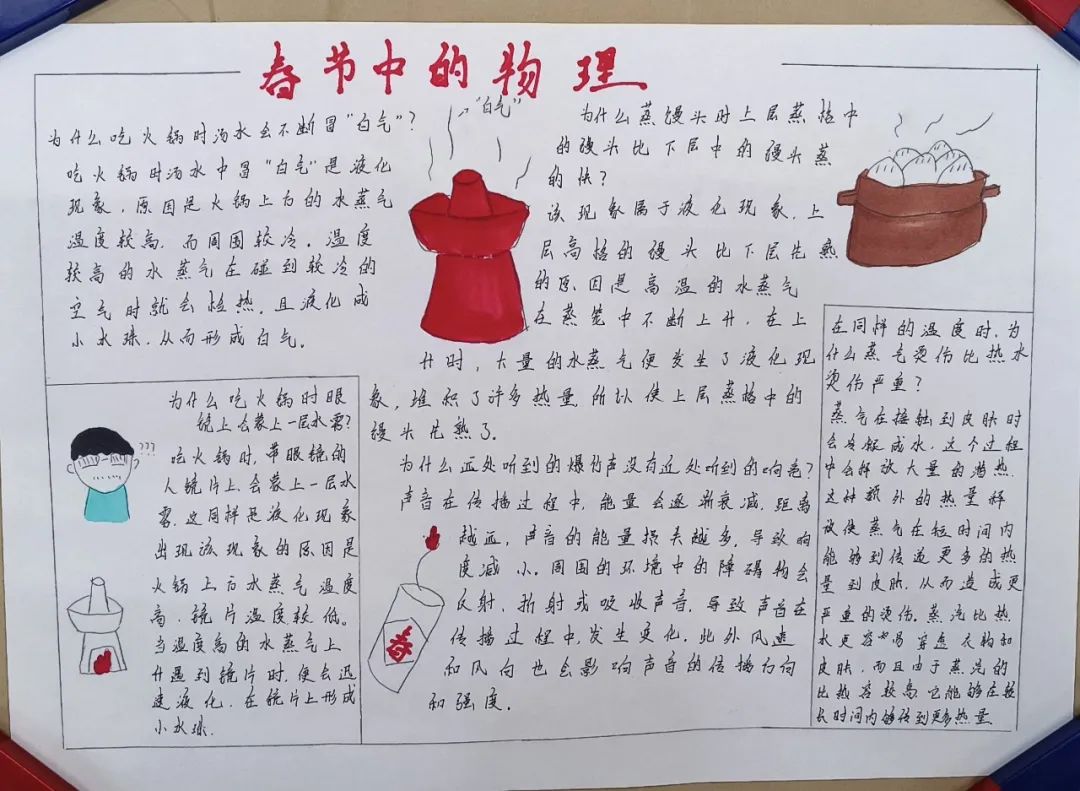 春节中的物理
为什么吃火锅时汤水会不断冒"白气"?
吃火锅时汤水中冒"白气"是液化
现象，原因是火锅上方的水蒸气
温度较高，而周围较冷。温度
较高的水蒸气在碰到较冷的
空气时就会放热，且液化成
小水珠，从而形成白气。
"白气"
为什么蒸馒头时上层蒸格中
的馒头比下层中的馒头蒸
的快?
该现象属于液化现象，上
层高格的馒头比下层先熟
的原因是高温的水蒸气
在蒸笼中不断上升，在上
升时，大量的水蒸气便发生了液化现
象，堆积了许多热量，所以使上层蒸格中的
馒头先熟了。
为什么吃火锅时眼
镜上会蒙上一层水雾?
???
吃火锅时，带眼镜的
人镜片上会蒙上一层水
雾，这同样是液化现象
出现该现象的原因是
火锅上方水蒸气温度
高，镜片温度较低。
当温度高的水蒸气上
升遇到镜片时，便会迅
速液化，在镜片上形成
小水珠.
为什么远处听到的爆竹声没有近处听到的响亮?
声音在传播过程中，能量会逐渐衰减，距离
越远，声音的能量损失越多，导致响
度减小。周围的环境中的障碍物会
反射，折射或吸收声音，导致声音在
传播过程中，发生变化，此外风速
和风向也会影响声音的传播方向
和强度.
春
在同样的温度时，为
什么蒸气烫伤比热水
烫伤严重?
蒸气在接触到皮肤时
会冷凝成水，这个过程
中会释放大量的潜热
这种额外的热量释
放使蒸气在短时间内
能够到传递更多的热
量到皮肤，从而造成更
严重的烫伤。蒸汽比热
水更容易穿透衣物和
皮肤，而且由于蒸汽的
比热容较高，它能够在较
长时间内够传到更多热量